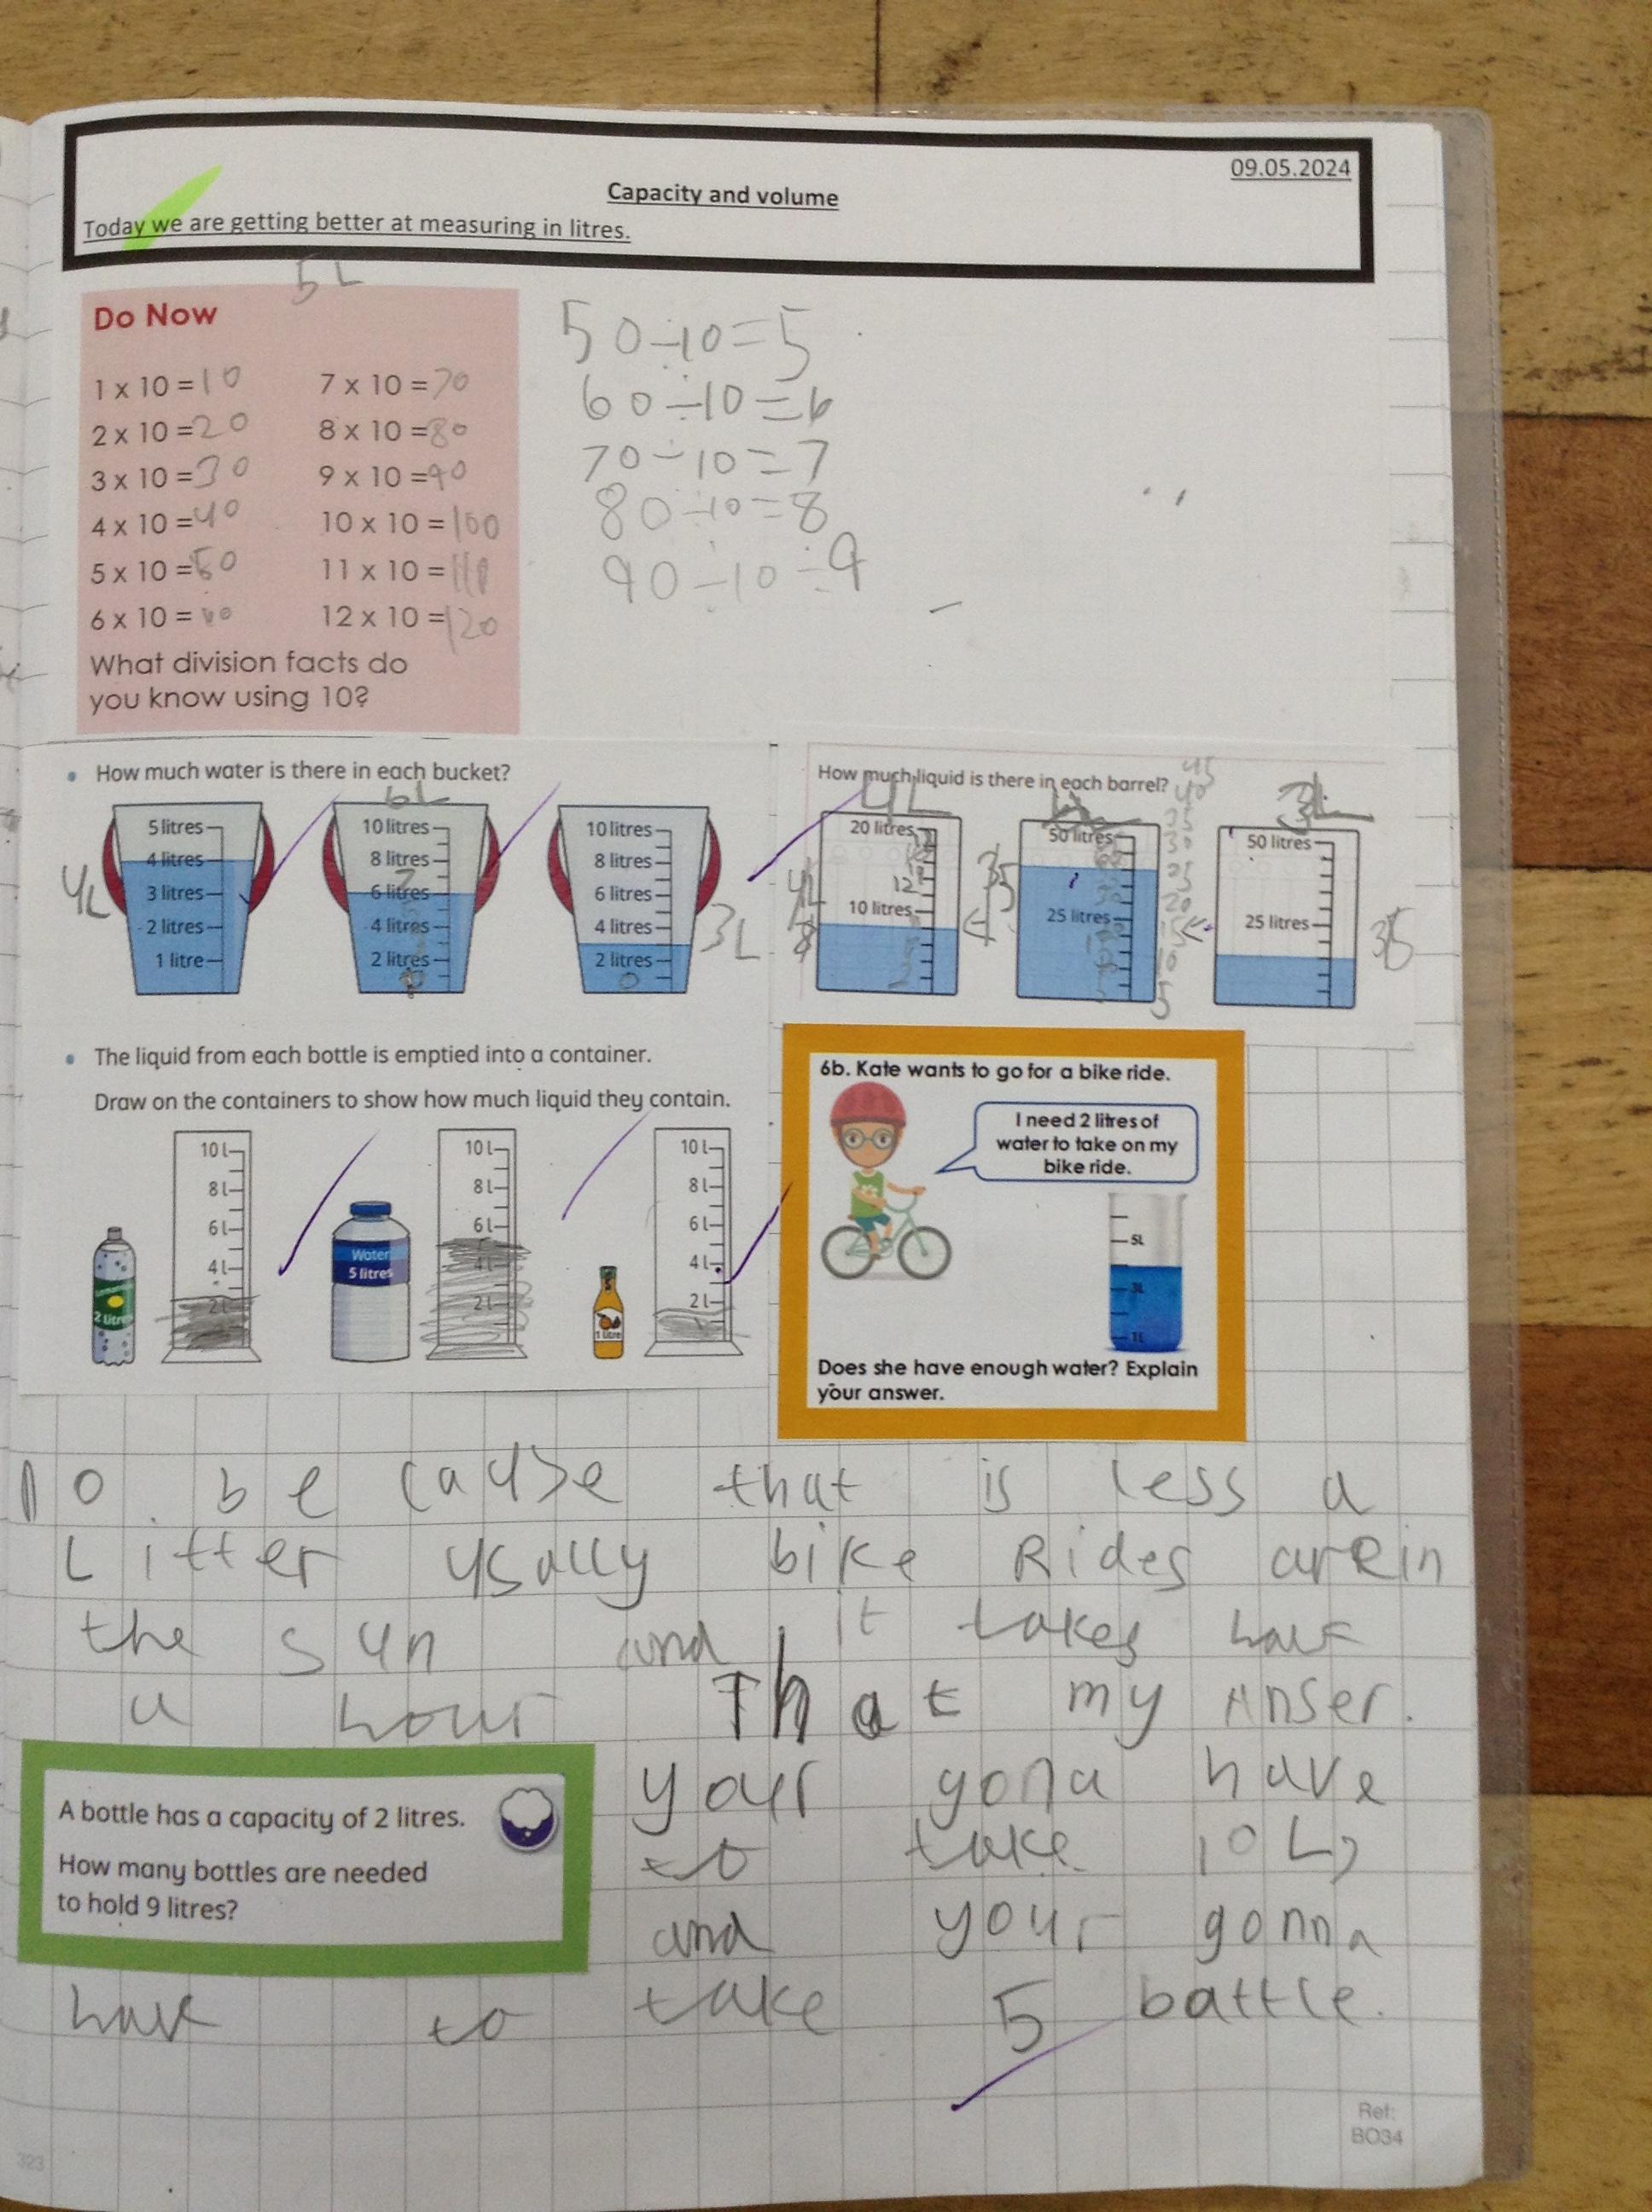 09.05.2024
Capacity and volume
Today we are getting better at measuring in litres.
5L
Do Now
1 x 10 = 10
2 x 10 = 20
3 x 10 = 30
4 x 10 = 40
5 x 10 = 50
6 x 10 =
7 x 10 = 70
8 x 10 = 80
9 x 10 = 90
10 x 10 = 100
11 x 10 =
12 x 10 = 120
What division facts do
you know using 10?
50÷10=5
60÷10=6
70÷10=7
80÷10=8
90÷10÷9
How much water is there in each bucket?
5 litres
4 litres
3 litres
2 litres
1 litre
4L
6L
10 litres
8 litres
6 litres
4 litres
2 litres
10 litres
8 litres
6 litres
4 litres
2 litres
3L
How much liquid is there in each barrel?
4L
20 litres
12
10 litres
35
50 litres
25 litres
45
40
35
30
25
20
15
10
5
3L
50 litres
25 litres
35
The liquid from each bottle is emptied into a container.
Draw on the containers to show how much liquid they contain.
2 litres
10 l
8 l
6 l
4 l
2 l
Water
5 litres
10 l
8 l
6 l
4 l
2 l
1 litre
10 l
8 l
6 l
4 l
2 l
6b. Kate wants to go for a bike ride.
I need 2 litres of
water to take on my
bike ride.
5L
3L
1L
Does she have enough water? Explain
your answer.
no be cause that is less a
Litter usally bike Rides arein
the sun and it takes half
a hour That my Anser.
A bottle has a capacity of 2 litres.
How many bottles are needed
to hold 9 litres?
your gona have
to take 10L,
and your gonna
have to take 5 battle.
Ref:
BO34
323